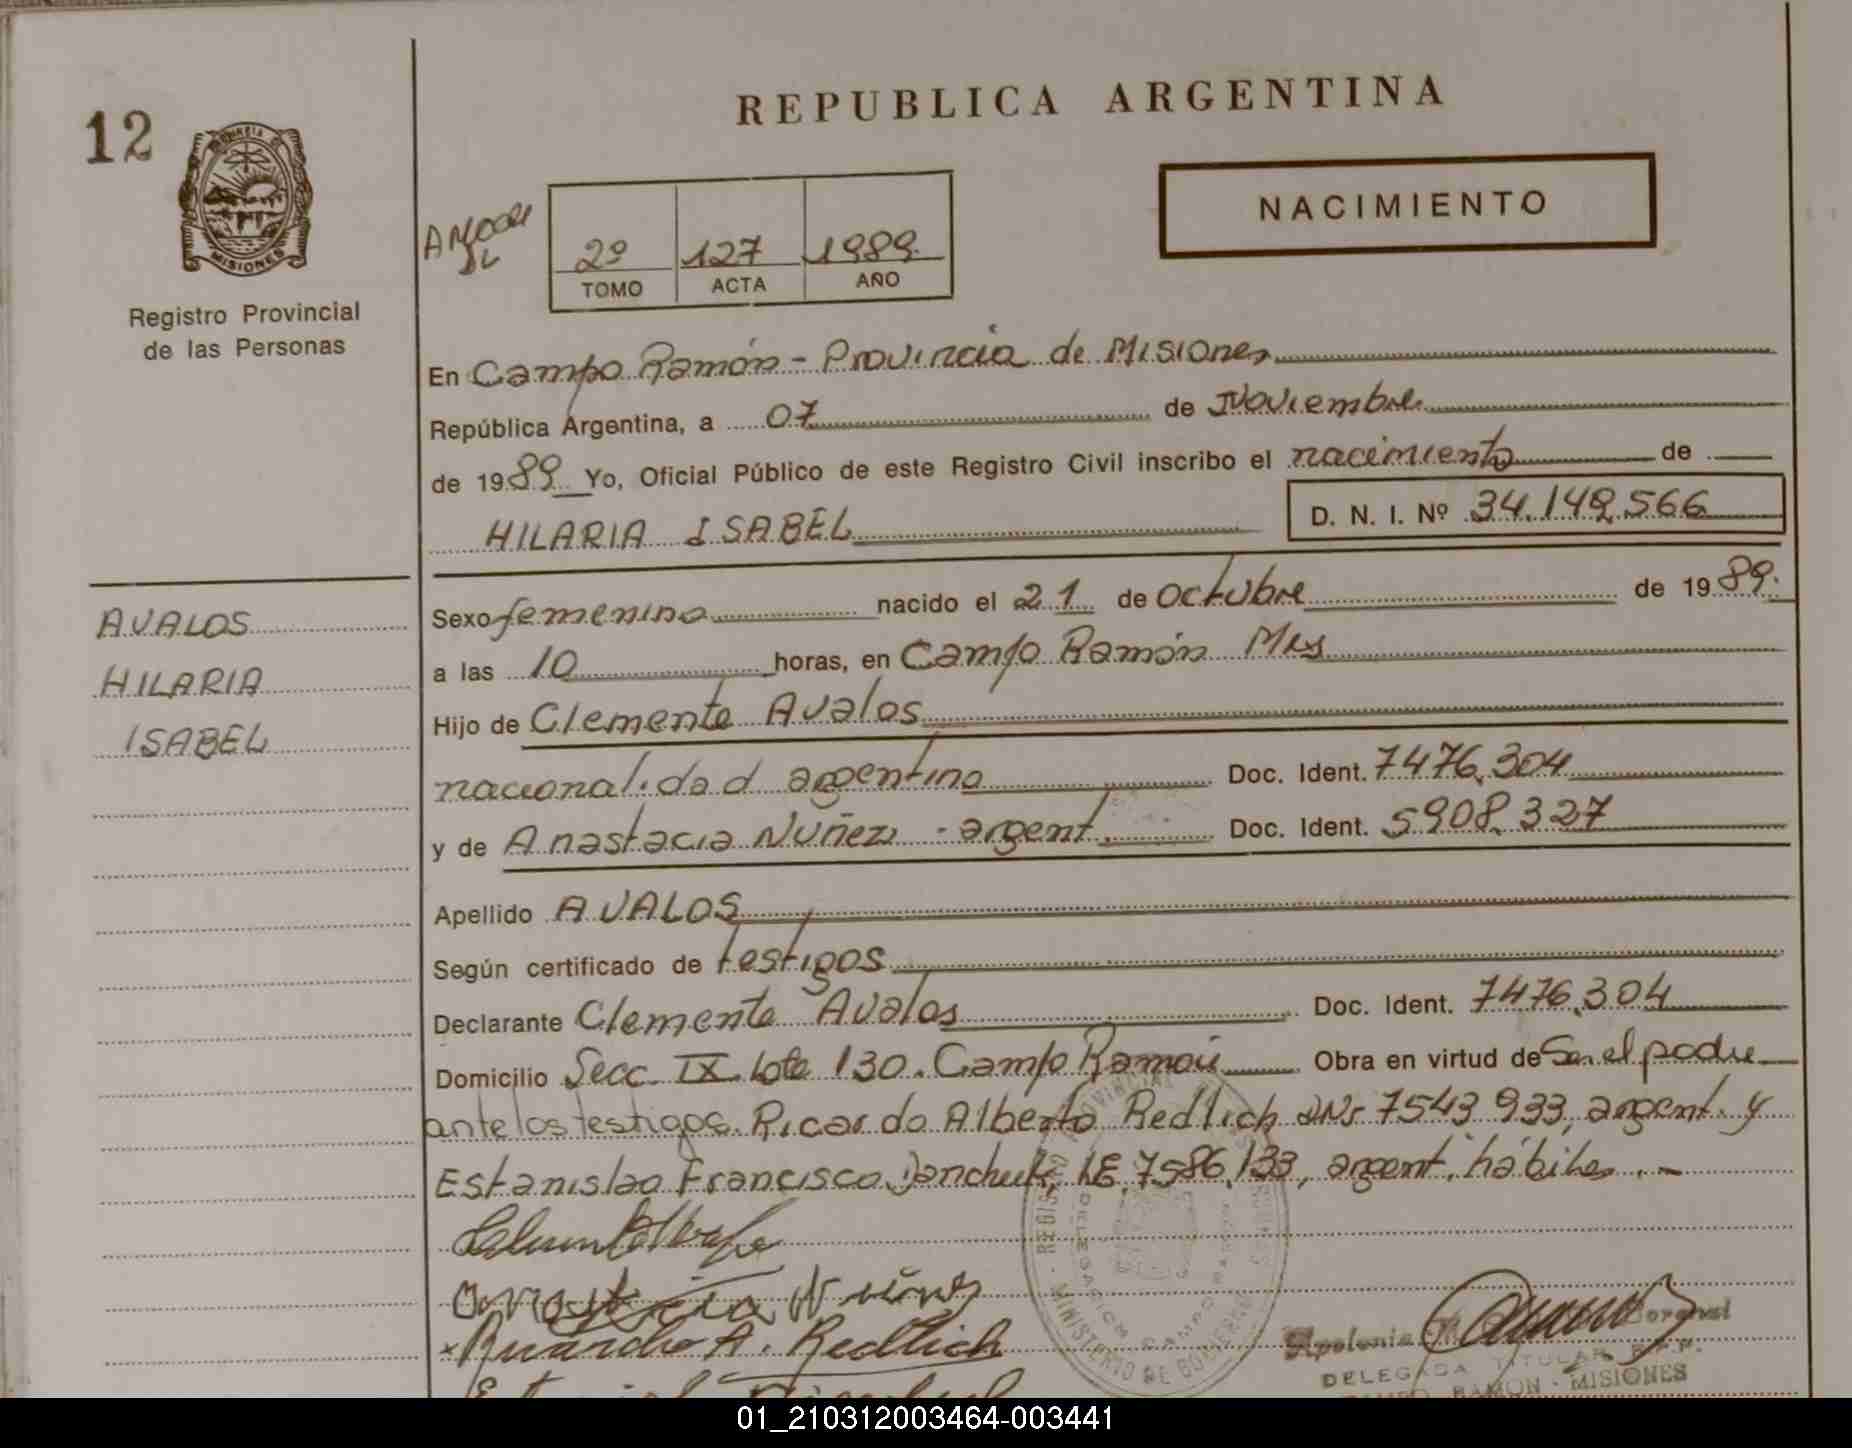 REPUBLICA ARGENTINA
12
NACIMIENTO
MISIONES
2º 127 1989
TOMO ACTA AÑO
Registro Provincial
de las Personas
En Campo Ramón - Provincia de Misiones
República Argentina, a 07 de Noviembre
de 1989 Yo, Oficial Público de este Registro Civil inscribo el nacimiento de
HILARIA ISABEL D. N. I. Nº 34.142.566
AVALOS
HILARIA
ISABEL
Sexo femenino nacido el 21 de octubre de 1989.
a las 10 horas, en Campo Ramón Mnes
Hijo de Clemente Avalos
nacionalidad argentino Doc. Ident. 7476.304
y de Anastacia Nuñez - argent. Doc. Ident. 5908.327
Apellido AVALOS
Según certificado de testigos
Declarante Clemente Avalos Doc. Ident. 7476.304
Domicilio Secc. IX Lote 130. Campo Ramón Obra en virtud de Ser el padre
ante los testigos Ricardo Alberto Redlich DNI 7543 933, argent. y
Estanislao Francisco LE. 7586.133, argent. hábiles. -
Anastacia Nuñez
Ricardo A. Redlich
DELEGADA TITULAR R.P.P.
CAMPO RAMON - MISIONES
01_210312003464-003441